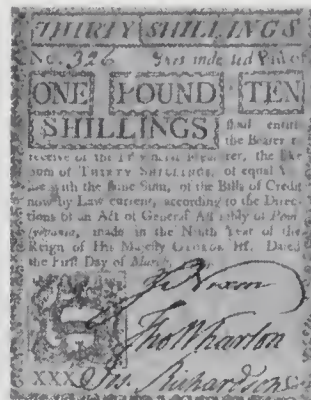 THIRTY SHILLINGS
No. 326 This indented Bill of
ONE POUND TEN
SHILLINGS shall entitle
the Bearer to
receive of the Treasurer, the like
Sum of THIRTY SHILLINGS, of equal
with the same Sum, of the Bills of Credit
now by Law current, according to the Direc-
tions of an Act of General Assembly of Penn
sylvania, made in the Ninth Year of the
Reign of His Majesty GEORGE III. Dated
the First Day of March,
Jn Nixon
Tho Wharton
XXX
Richardson